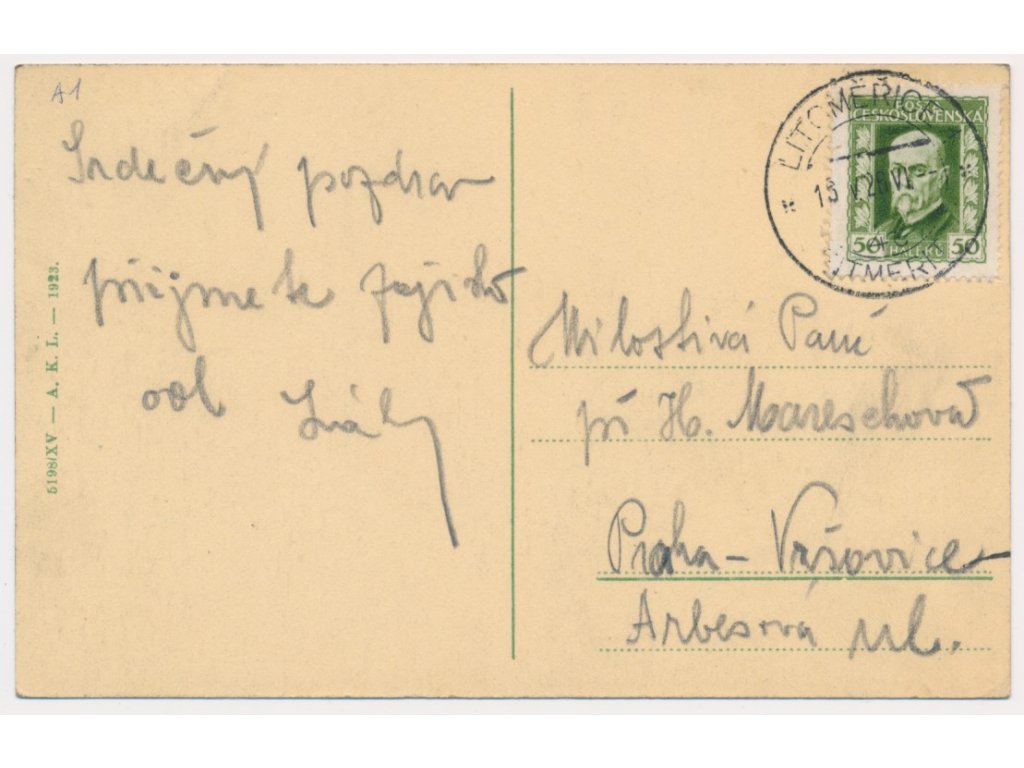 A1
Srdečný pozdrav
přijmete
od
5198/XV — A. K. L. — 1923.
LITOMĚŘICE
POŠTA
ČESKOSLOVENSKA
50 HALÉŘŮ 50
Milostivá Paní
pí H. Mareschová
Praha - Vršovice
Arbesova ul.